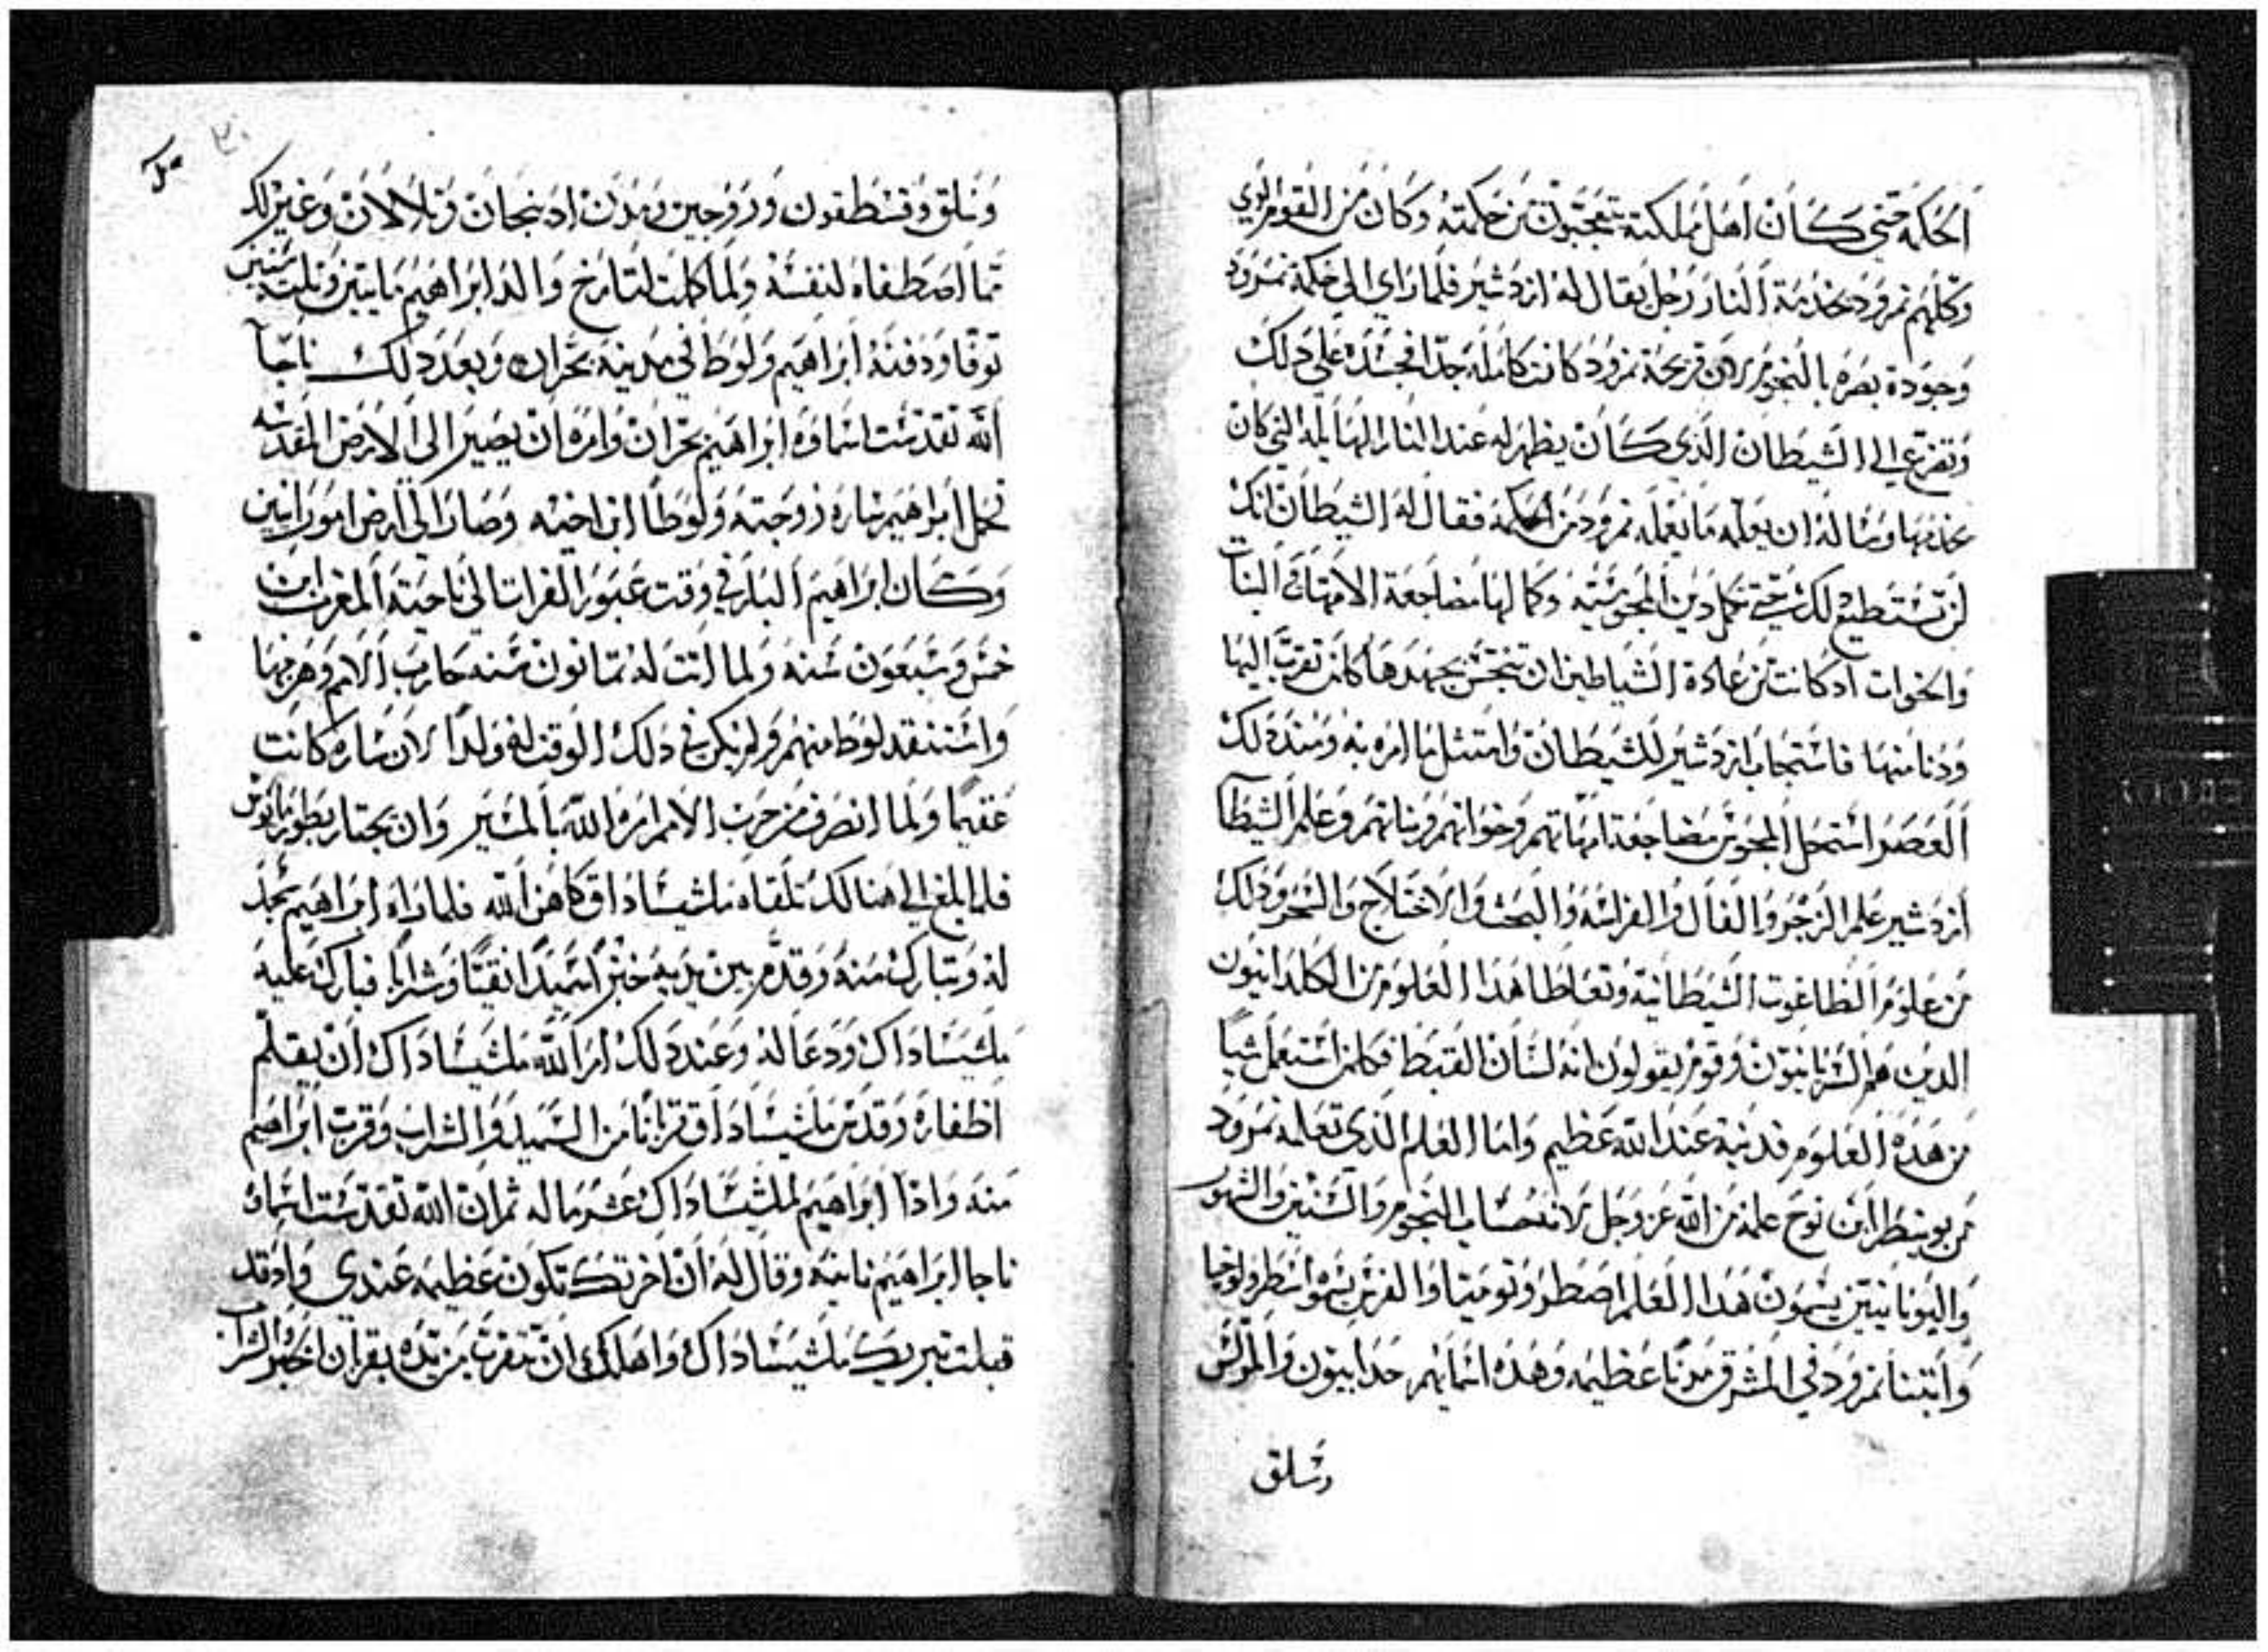 الحكمة حتي كان اهل مملكته يتعجبون من حكمته وكان من القوم الذي
وكلهم نمرود بخدمة النار رجل يقال له ازدشير فلما راي الي حكمة نمرود
وجودة بصره بالنجوم لان قريحة نمرود كانت كاملة جدا فحسده علي دلك
وتضرع الي الشيطان الذي كان يظهر له عند النار الهايلة التي كان
يخدمها وساله ان يعلمه ما يعلمه نمرود من الحكمة فقال له الشيطان انك
لن تستطيع دلك حتي تكمل دين المجوسيه وكمالها مضاجعة الامهات والبنات
والاخوات اد كانت من عادة الشياطين ان تنجس بجهدها كلمن تقرب اليها
ودنا منها فاستجاب ازدشير للشيطان وامتثل ما امره به ومند دلك
العصر استحل المجوس مضاجعة امهاتهم وخواتهم وبناتهم وعلم الشيطان
ازدشير علم الزجر والفال والفراسه والبحث والاختلاج والسحر ودلك
من علوم الطاغوت الشيطانية وتعاطا هدا العلوم من الكلدانيون
الدين هم السريانيون وقوم يقولون انه لسان القبط فكلمن استعمل شيا
من هده العلوم فدنبه عند الله عظيم واما العلم الذي تعلمه نمرود
من بونيطر ابن نوح علمه من الله عز وجل لانه حساب النجوم والسنين والشهور
واليونانيين يسمون هدا العلم اصطرونوميا والفرس يسموا اسطرولوجيا
وابتنا نمرود في المشرق مدنا عظيمه وهده اسمايهم حدانيون والمرلس
وسلق
وسلق وقسطفون وزوجين ومدن ادبنجان وتلالان وغير دلك
مما اصطفاه لنفسه ولما كملت لتارخ والد ابراهيم مايتين وتلت سنين
توفا ودفنه ابراهيم ولوطا في مدينة بحران وبعد دلك ناجا
الله تقدست اسماوه ابراهيم بحران وامره ان يصير الي الارض المقدسه
فحمل ابراهيم ساره زوجته ولوطا ابن اخيه وصار الي ارض امورانيين
وكان ابراهيم البار في وقت عبور الفرات الي ناحية المغرب ابن
خمس وسبعون سنه ولما اتت له تمانون سنه حارب الامم وهزمها
واستنقد لوط منهم ولم يكن في دلك الوقت له ولدا لان ساره كانت
عقيما ولما انصرف من حرب الامم امره الله بالمسير وان يجتاز بطور مانوس
فلما بلغ الي هنالك تلقاه ملشيساداق كاهن الله فلما راه ابراهيم سجد
له وتبارك منه وقدم بين يديه خبز سميدا نقيا وشرابا فبارك عليه
ملشيساداك ودعا له وعند دلك امر الله ملشيساداك ان يقلم
اظفاره وقدس ملشيساداق قربانا من السميد والشراب وقرب ابراهيم
منه وادا ابراهيم لملشيساداك عشر ماله ثم ان الله تقدست اسماوه
ناجا ابراهيم ثانيه وقال له ان اخرتك تكون عظيمه عندي وادقد
قبلت تبريك ملشيساداك واهلك ان تتقرب من يده بقربان الخبز والشراب